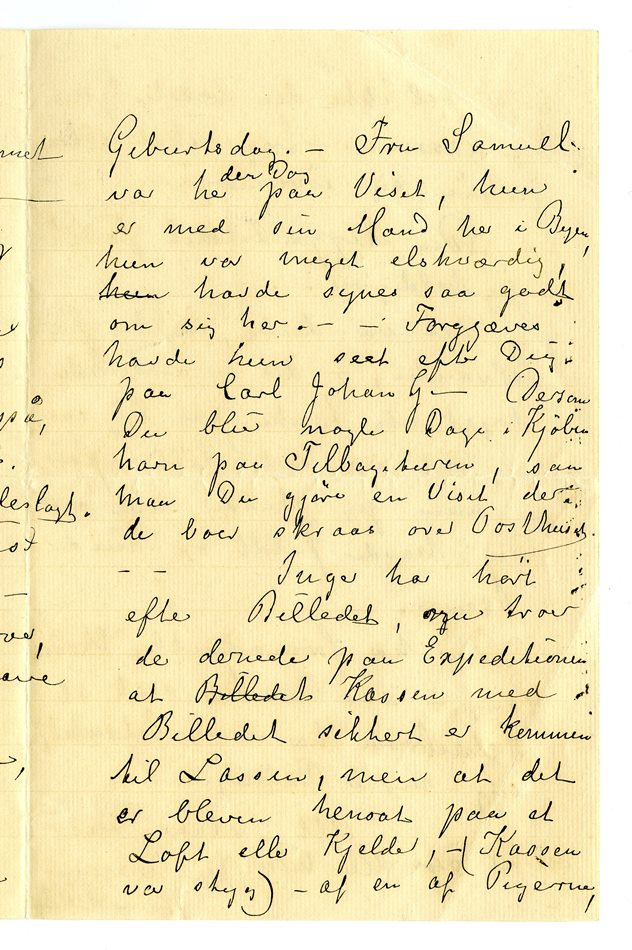 Geburtsdag. – Fru Samuel.
var he den Dag paa Visit, hun
er med sin Mand her i Byen,
hun var meget elskværdig,
hun havde synes saa godt
om sig her. – – Forgjæves
havde hun seet efte Dig
paa Carl Johan G – (Dersom
Du blir nogle Dage i Kjöben
havn paa Tilbageturen, saa
maa Du gjöre en Visit der
de boer skraas over Posthuset.
– – Inge har hört
efte Billedet, tror
de dernede paa Expeditionen
at Billedet Kassen med
Billedet sikkert er kommen
til Lassen, men at det
er bleven hensat paa et
Loft elle Kjelde, – (Kassen
va stygg) – af en af Pigerne,
met
på,
deslagt.